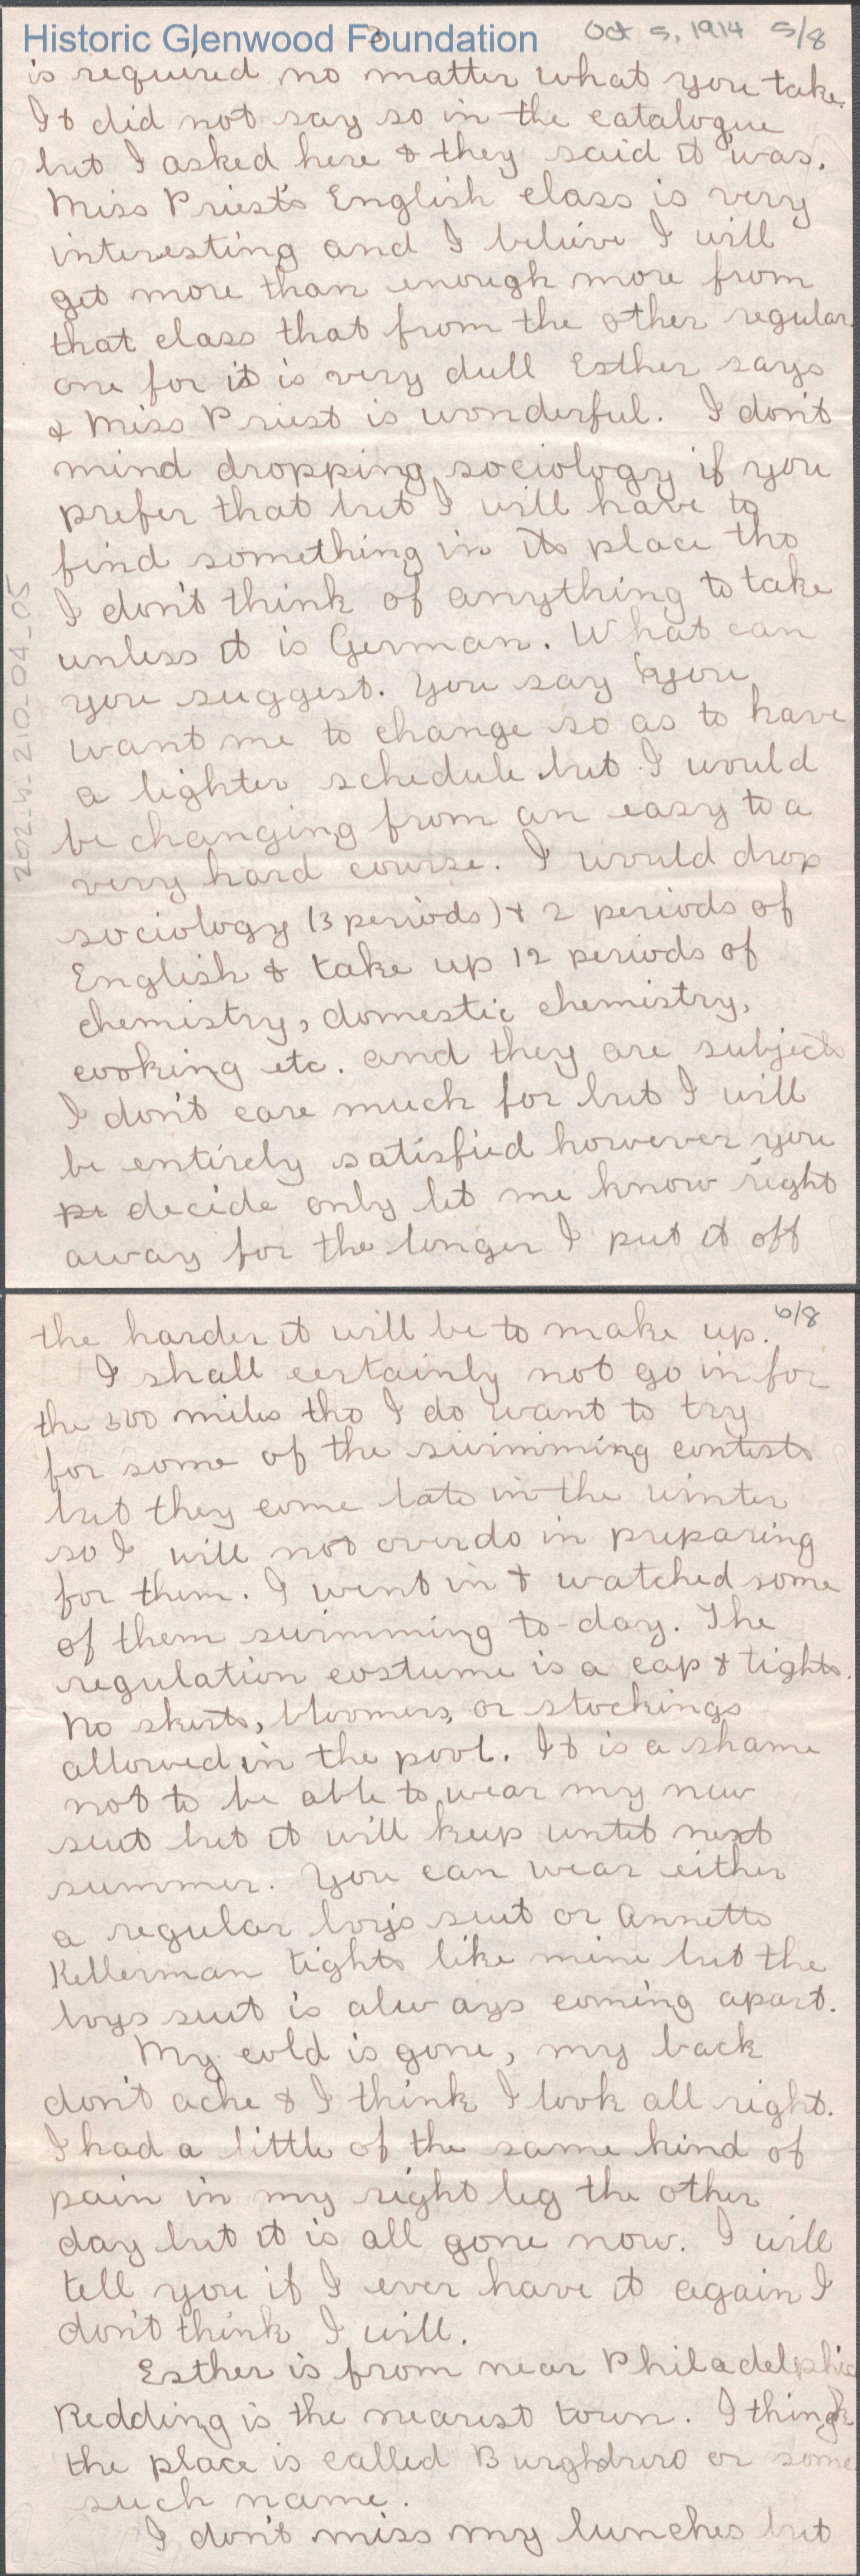 Historic Glenwood Foundation
Oct 5, 1914 5/8
3
is required no matter what you take.
It did not say so in the catalogue
but I asked here & they said it was.
Miss Priest's English class is very
interesting and I believe I will
get more than enough more from
that class that from the other regular
one for it is very dull Esther says
& Miss Priest is wonderful. I don't
mind dropping sociology if you
prefer that but I will have to
find something in its place tho
I don't think of anything to take
unless it is German. What can
you suggest. You say you
want me to change so as to have
a lighter schedule but I would
be changing from an easy to a
very hard course. I would drop
sociology (3 periods) & 2 periods of
English & take up 12 periods of
chemistry, domestic chemistry,
cooking etc. and they are subjects
I don't care much for but I will
be entirely satisfied however you
pr decide only let me know right
away for the longer I put it off
202-4-210-04-05
the harder it will be to make up.
6/8
I shall certainly not go in for
the 500 miles tho I do want to try
for some of the swimming contests
but they come late in the winter
so I will not overdo in preparing
for them. I went in & watched some
of them swimming to-day. The
regulation costume is a cap & tights.
No skirts, bloomers, or stockings
allowed in the pool. It is a shame
not to be able to wear my new
suit but it will keep until next
summer. You can wear either
a regular boy's suit or Annette
Kellerman tights like mine but the
boys suit is always coming apart.
My cold is gone, my back
don't ache & I think I look all right.
I had a little of the same kind of
pain in my right leg the other
day but it is all gone now. I will
tell you if I ever have it again I
don't think I will.
Esther is from near Philadelphia
Redding is the nearest town. I think
the place is called Burghburo or some
such name.
I don't miss my lunches but